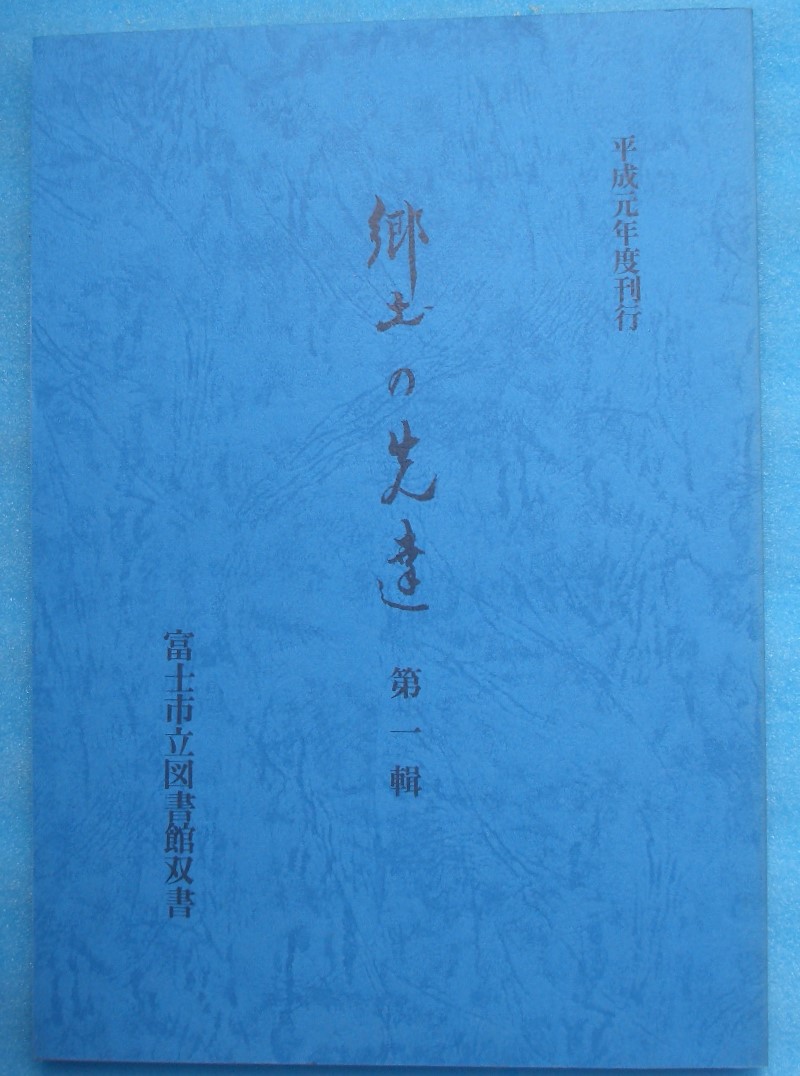 平成元年度刊行
郷土の先達 第一輯
富士市立図書館双書